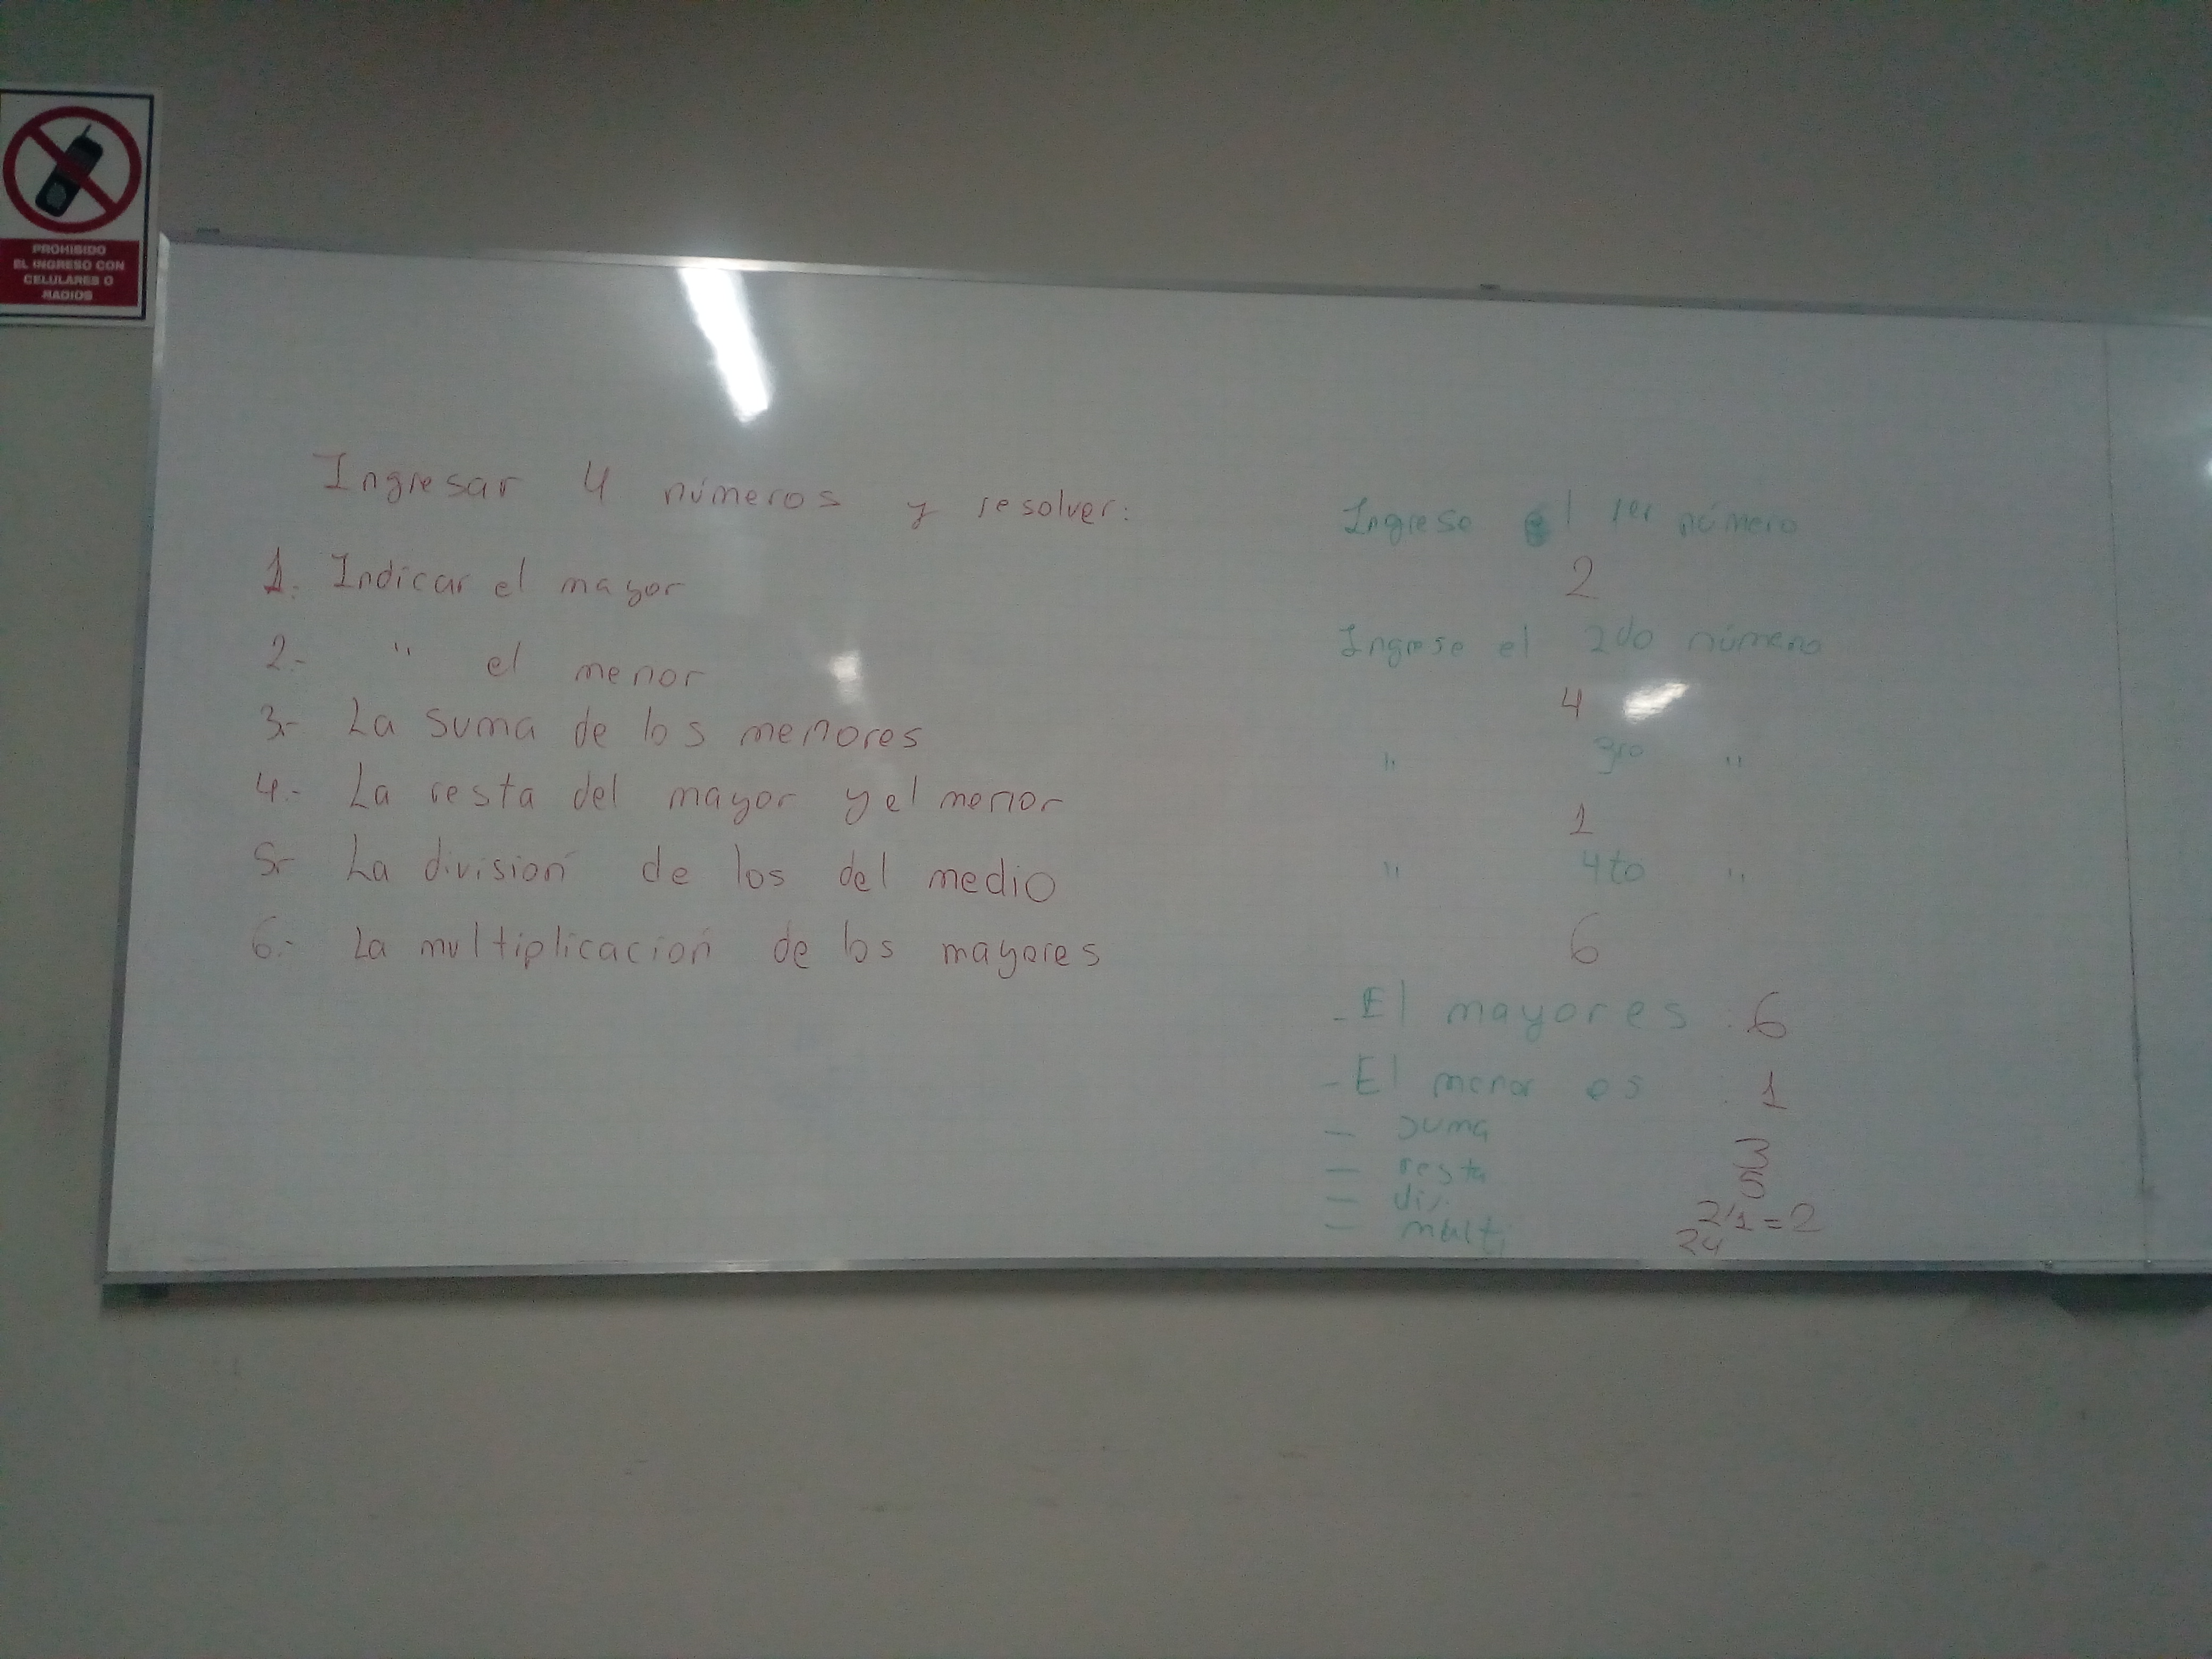 PROHIBIDO
EL INGRESO CON
CELULARES O
RADIOS
Ingresar 4 números y resolver:
1. Indicar el mayor
2.- " el menor
3.- La suma de los menores
4.- La resta del mayor y el menor
5.- La división de los del medio
6.- La multiplicación de los mayores
Ingrese el 1er número
2
Ingrese el 2do número
4
" 3ro "
1
" 4to "
6
- El mayor es : 6
- El menor es : 1
- suma 3
- resta 5
- div. 2/1 = 2
- multi 24